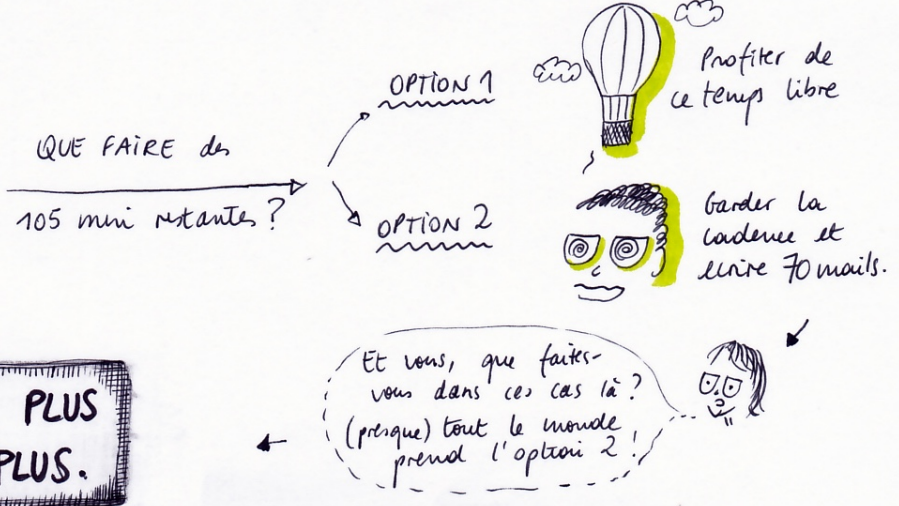 QUE FAIRE des
105 min restantes ?
OPTION 1
Profiter de
ce temps libre
OPTION 2
Garder la
cadence et
écrire 70 mails.
Et vous, que faites-
vous dans ces cas là ?
(presque) tout le monde
prend l'option 2 !
PLUS
PLUS.